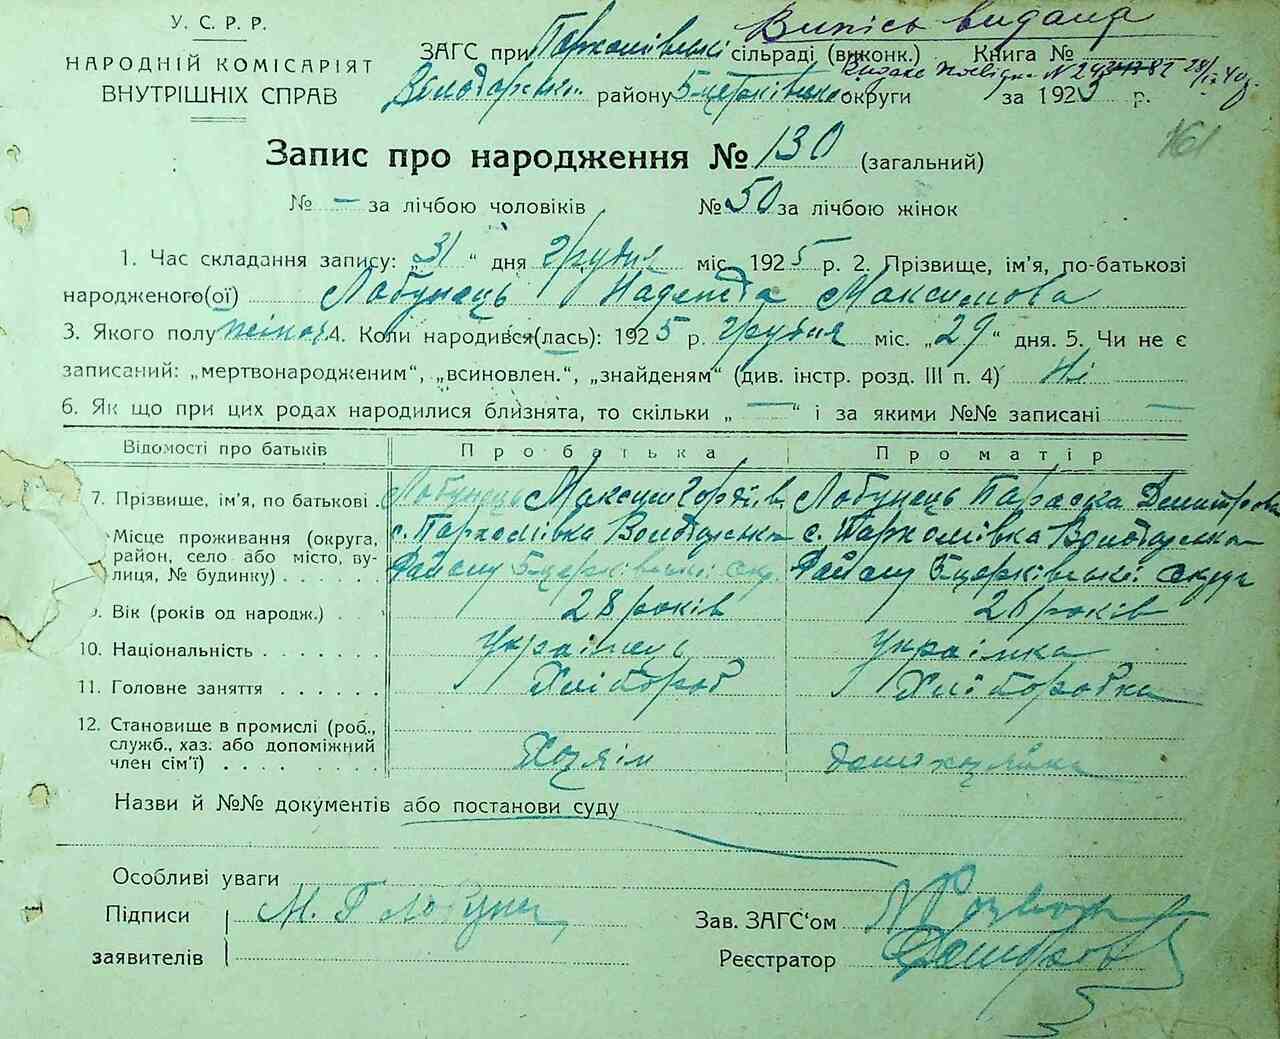 Випись видана
У. С. Р. Р.
НАРОДНІЙ КОМІСАРІЯТ
ВНУТРІШНІХ СПРАВ
ЗАГС при Пархомівські сільраді (виконк.) Книга №
Володарськ. району Б-церківсько округи за 1925 р.
161
Запис про народження № 130 (загальний)
№ — за лічбою чоловіків № 50 за лічбою жінок
1. Час складання запису: „31“ дня Грудня міс. 1925 р. 2. Прізвище, ім'я, по-батькові
народженого(ої) Лобунець Надежда Максимова
3. Якого полу жіноч 4. Коли народився(лась): 1925 р. Грудня міс. „29“ дня. 5. Чи не є
записаний: „мертвонародженим“, „всиновлен.“, „знайденям“ (див. інстр. розд. III п. 4) Ні
6. Як що при цих родах народилися близнята, то скільки „ — “ і за якими №№ записані —
Відомості про батьків Про батька Про матір
7. Прізвище, ім'я, по батькові . Лобунець Максим Гордіїв Лобунець Параска Дмитрова
Місце проживання (округа, район, село або місто, вулиця, № будинку) . . . . . с. Пархомівка Володарсько с. Пархомівка Володарсько
Району Б-церківської окр. Району Б-церківської округи
9. Вік (років од народж.) . . 28 років 26 років
10. Національність . . . . . . . Українець Українка
11. Головне заняття . . . . . . Хлібороб Хліборобка
12. Становище в промислі (роб.,
служб., хаз. або допоміжний
член сім'ї) . . . . . . . . Хозяїн домохозяйка
Назви й №№ документів або постанови суду
Особливі уваги
Підписи М. Г Лобунец Зав. ЗАГС'ом
заявителів Реєстратор